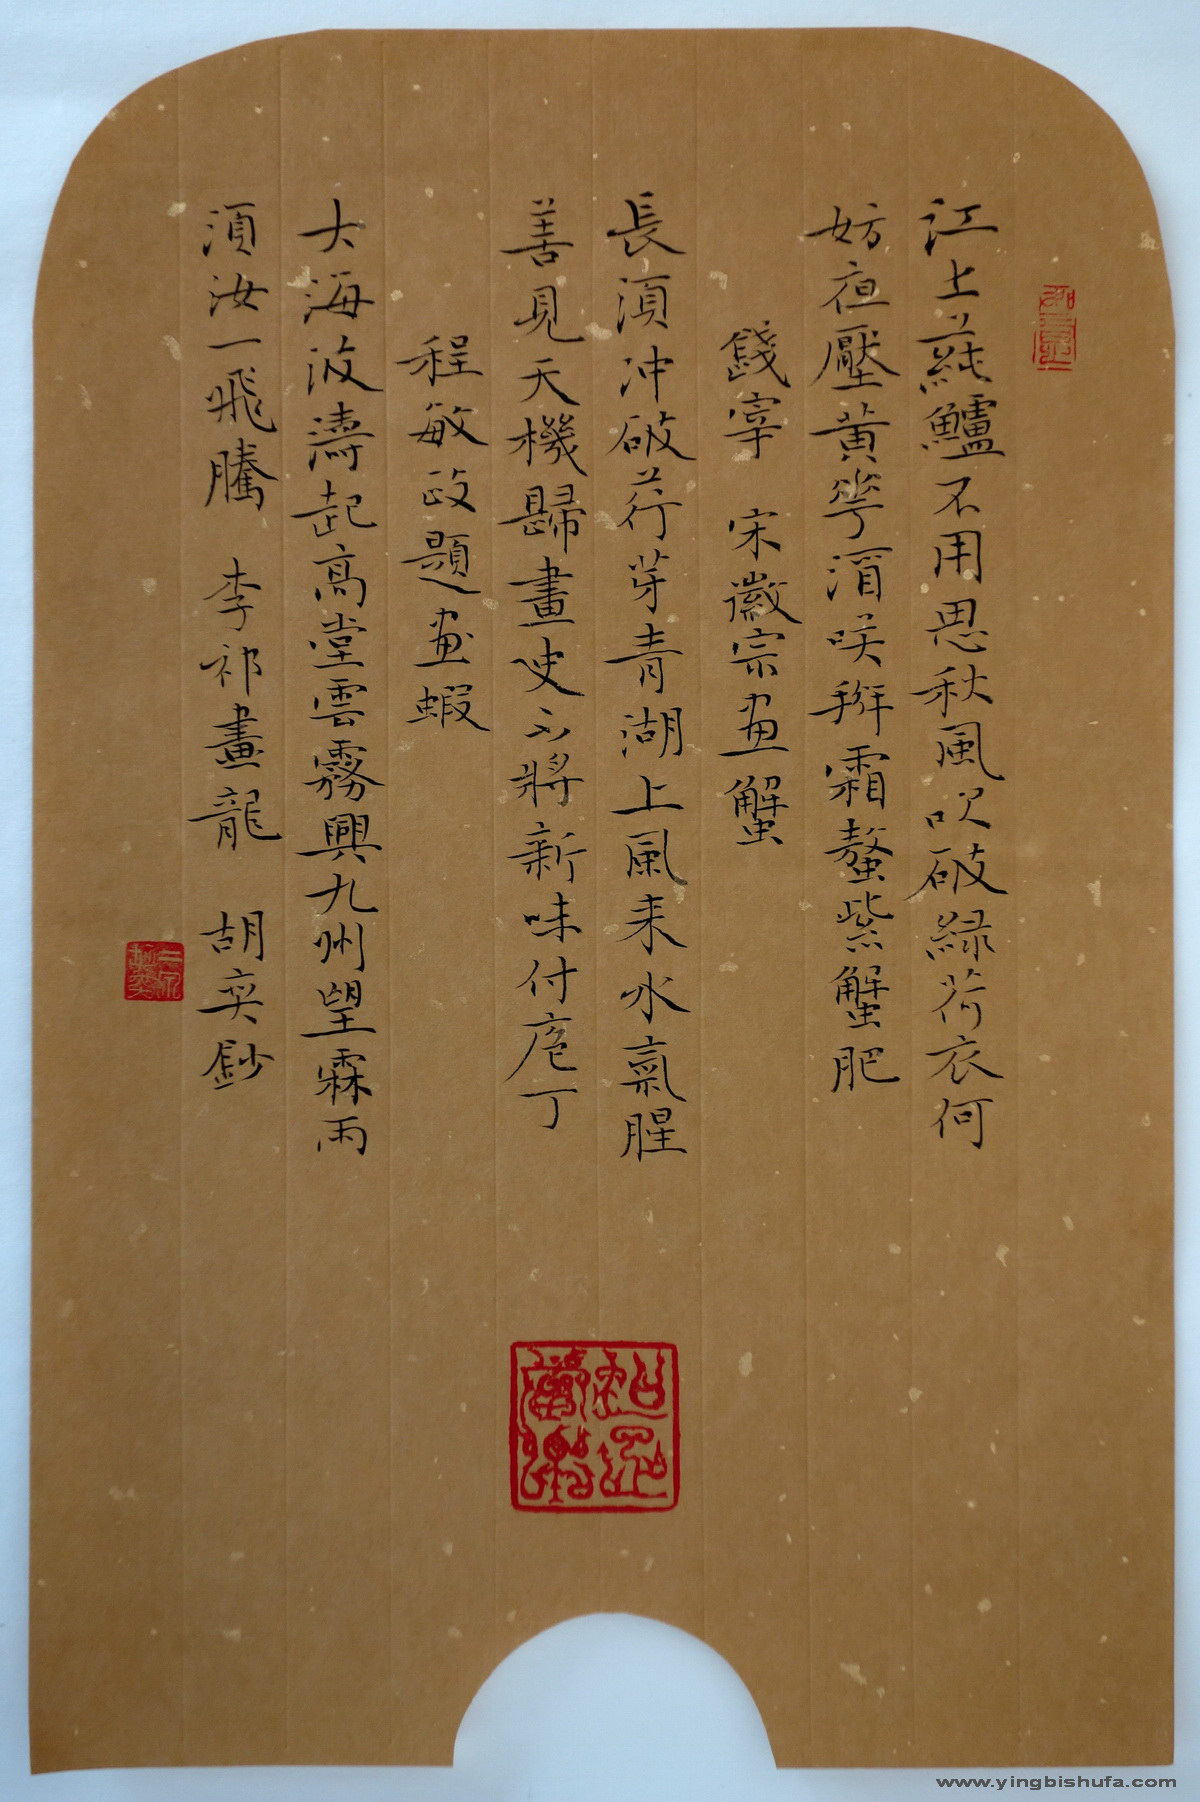 江上蒓鱸不用思秋風吹破緑荷衣何
妨夜壓黄花酒咲擘霜螯紫蟹肥
錢宰 宋徽宗画蟹
長須冲破荇芽青湖上風来水氣腥
善見天機歸畫史不將新味付庖丁
程敏政題画蝦
大海波濤起高堂雲霧興九州望霖雨
須汝一飛騰 李祁畫龍 胡奕鈔
www.yingbishufa.com